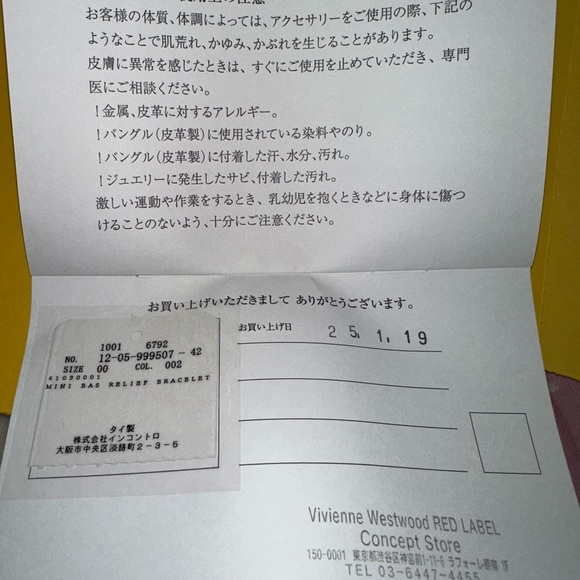 お客様の体質、体調によっては、アクセサリーをご使用の際、下記の
ようなことで肌荒れ、かゆみ、かぶれを生じることがあります。
皮膚に異常を感じたときは、すぐにご使用を止めていただき、専門
医にご相談ください。
！金属、皮革に対するアレルギー。
！バングル（皮革製）に使用されている染料やのり。
！バングル（皮革製）に付着した汗、水分、汚れ。
！ジュエリーに発生したサビ、付着した汚れ。
激しい運動や作業をするとき、乳幼児を抱くときなどに身体に傷つ
けることのないよう、十分にご注意ください。
お買い上げいただきまして ありがとうございます。
お買い上げ日 25. 1. 19
1001 6792
NO. 12-05-999507 - 42
SIZE 00 COL. 002
61030001
MINI BAS RELIEF BRACELET
タイ製
株式会社インコントロ
大阪市中央区淡路町2-3-5
Vivienne Westwood RED LABEL
Concept Store
150-0001 東京都渋谷区神宮前1-11-6 ラフォーレ原宿 1F
TEL 03-6447-4455